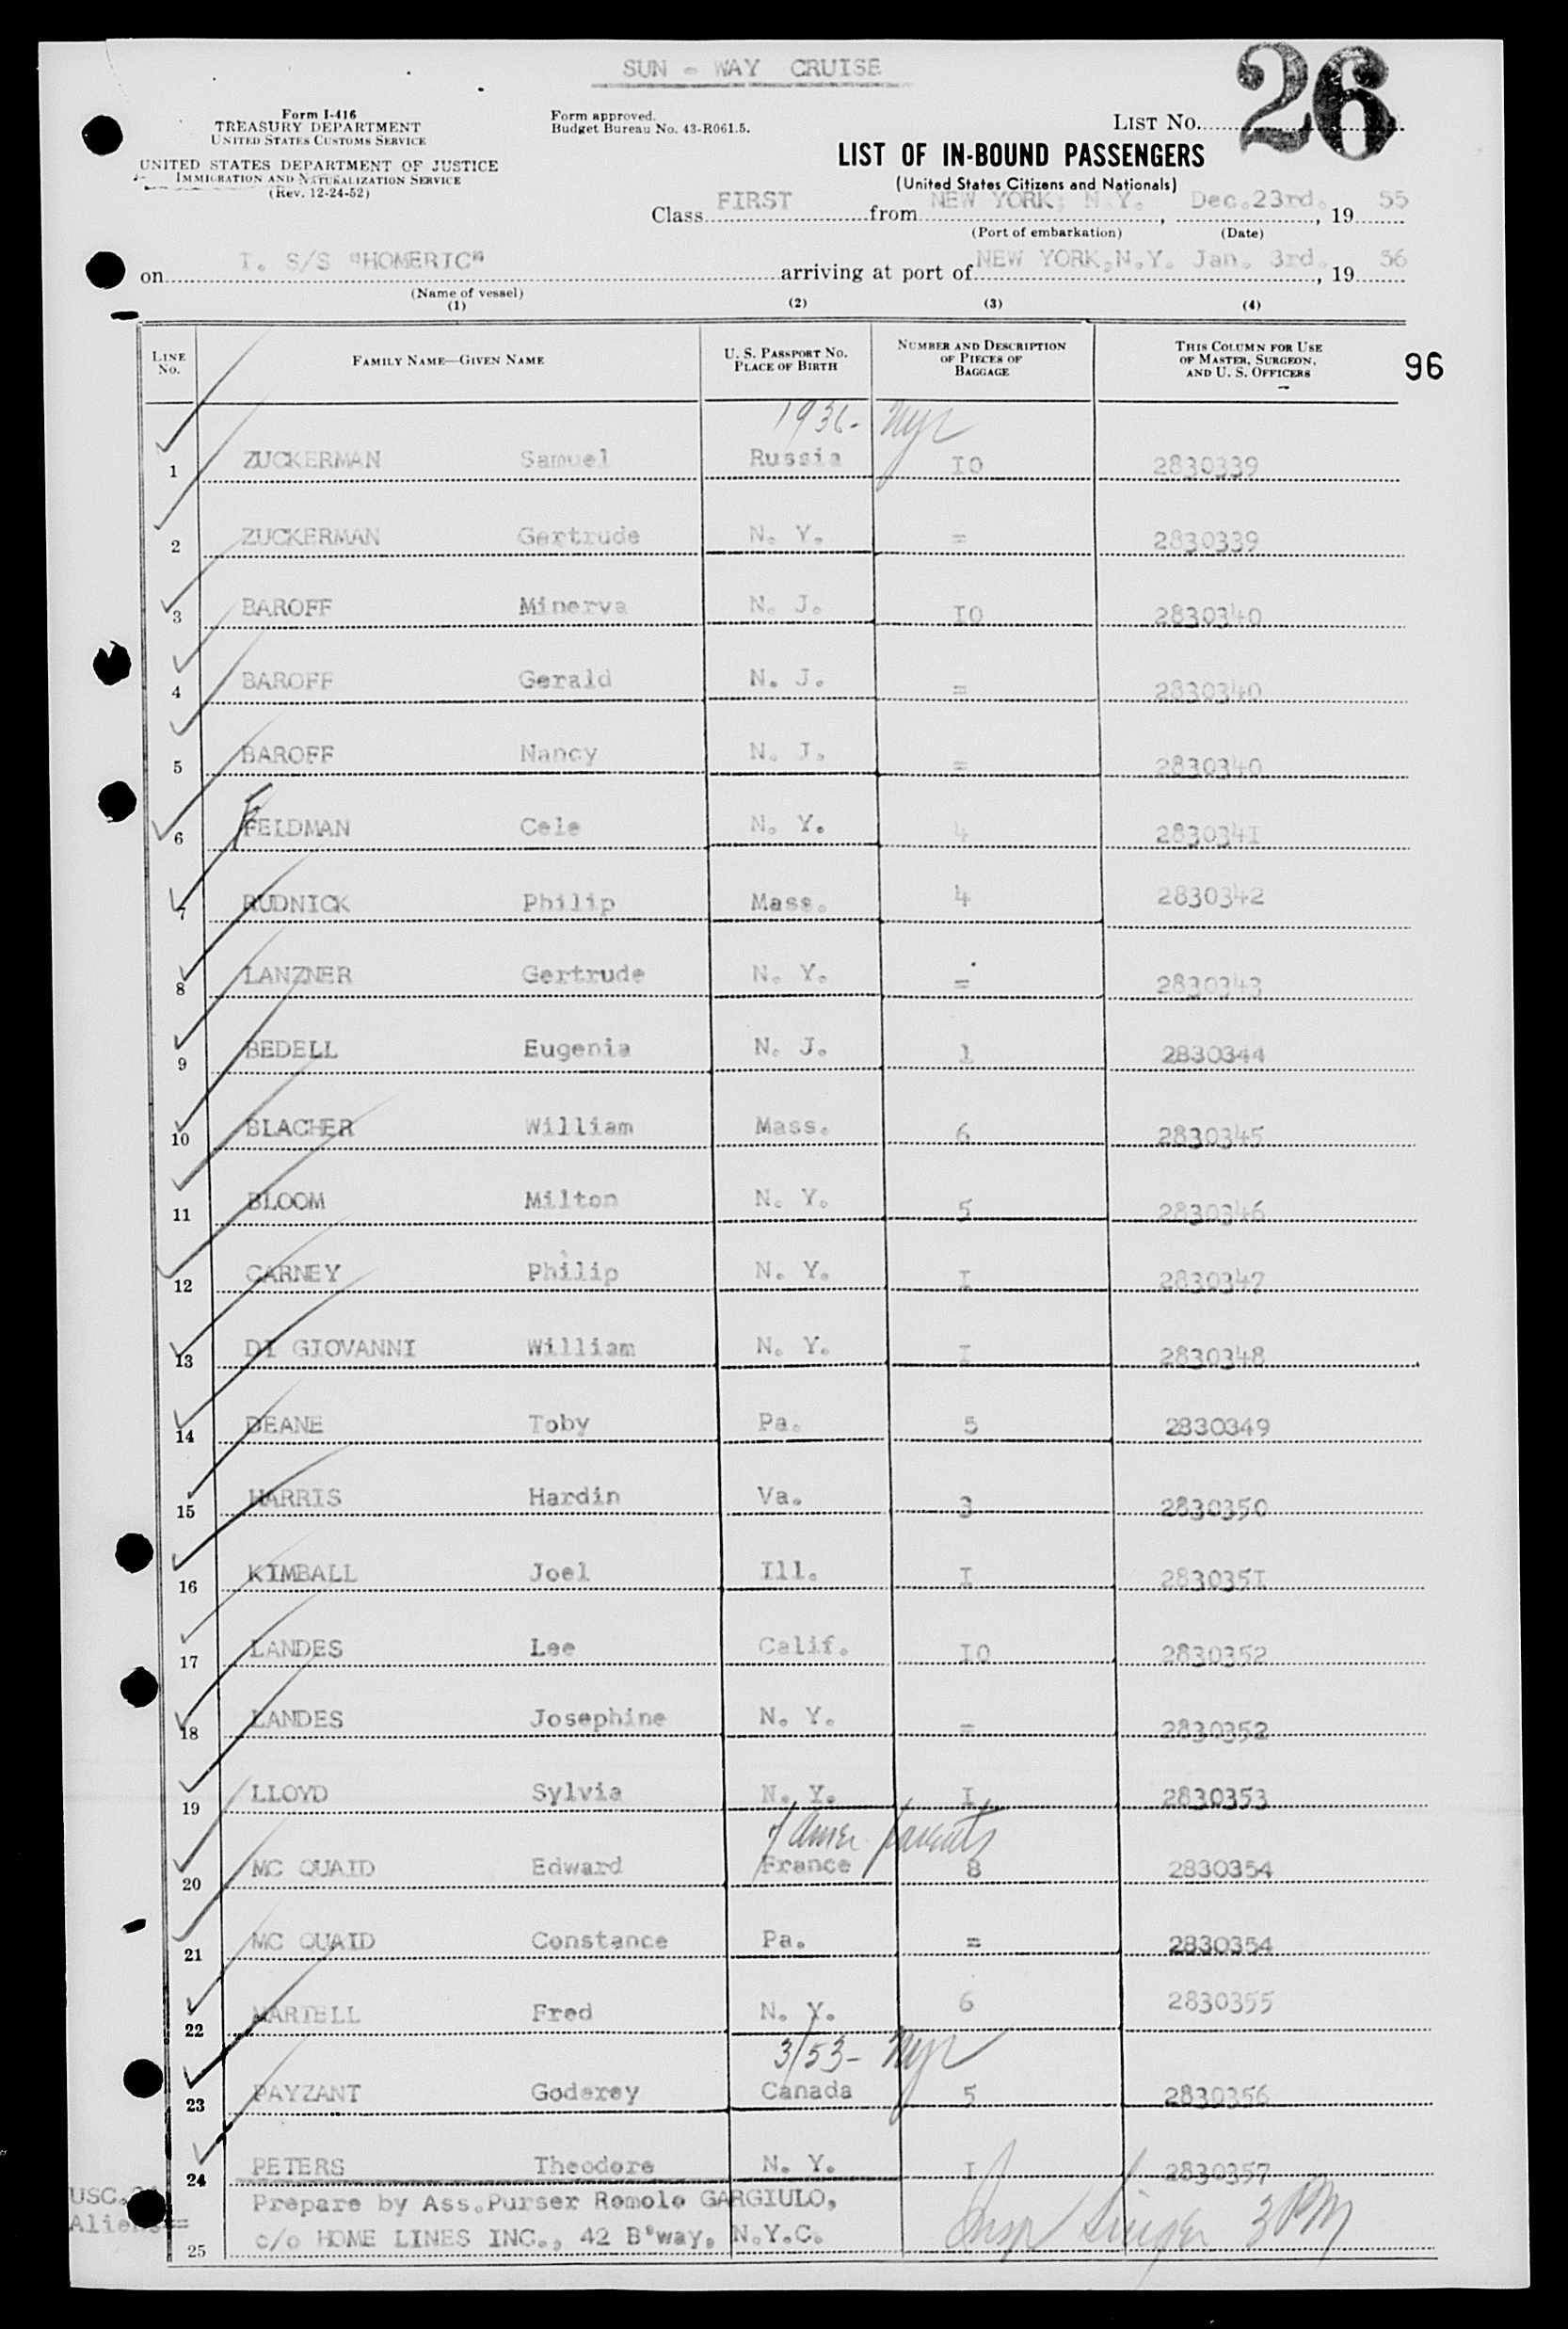 SUN - WAY CRUISE
26
Form I-416
TREASURY DEPARTMENT
UNITED STATES CUSTOMS SERVICE
UNITED STATES DEPARTMENT OF JUSTICE
IMMIGRATION AND NATURALIZATION SERVICE
(Rev. 12-24-52)
Form approved.
Budget Bureau No. 43-R061.5.
LIST NO.
LIST OF IN-BOUND PASSENGERS
(United States Citizens and Nationals)
Class FIRST from NEW YORK, N.Y., Dec.23rd., 19 55
(Port of embarkation) (Date)
on I. S/S "HOMERIC" arriving at port of NEW YORK,N.Y. Jan. 3rd., 19 56
(Name of vessel)
(1) (2) (3) (4)
LINE NO. FAMILY NAME—GIVEN NAME U. S. PASSPORT NO. PLACE OF BIRTH NUMBER AND DESCRIPTION OF PIECES OF BAGGAGE THIS COLUMN FOR USE OF MASTER, SURGEON, AND U. S. OFFICERS
96
1936- Nyc
1 ZUCKERMAN Samuel Russia IO 2830339
2 ZUCKERMAN Gertrude N. Y. = 2830339
3 BAROFF Minerva N. J. IO 2830340
4 BAROFF Gerald N. J. = 2830340
5 BAROFF Nancy N. J. = 2830340
6 FELDMAN Cele N. Y. 4 283034I
7 RUDNICK Philip Mass. 4 2830342
8 LANZNER Gertrude N. Y. = 2830343
9 BEDELL Eugenia N. J. 1 2830344
10 BLACHER William Mass. 6 2830345
11 BLOOM Milton N. Y. 5 2830346
12 CARNEY Philip N. Y. I 2830347
13 DI GIOVANNI William N. Y. I 2830348
14 DEANE Toby Pa. 5 2830349
15 HARRIS Hardin Va. 3 2830350
16 KIMBALL Joel Ill. I 283035I
17 LANDES Lee Calif. IO 2830352
18 LANDES Josephine N. Y. = 2830352
19 LLOYD Sylvia N. Y. I 2830353
of Amer. parents
20 MC QUAID Edward France 8 2830354
21 MC QUAID Constance Pa. = 2830354
22 MARTELL Fred N. Y. 6 2830355
3/53- Nyc
23 PAYZANT Goderey Canada 5 2830356
24 PETERS Theodore N. Y. I 2830357
USC.
Prepare by Ass.Purser Romolo GARGIULO,
Aliens=
25 c/o HOME LINES INC., 42 B'way, N.Y.C.
Insp Singer 3 PM